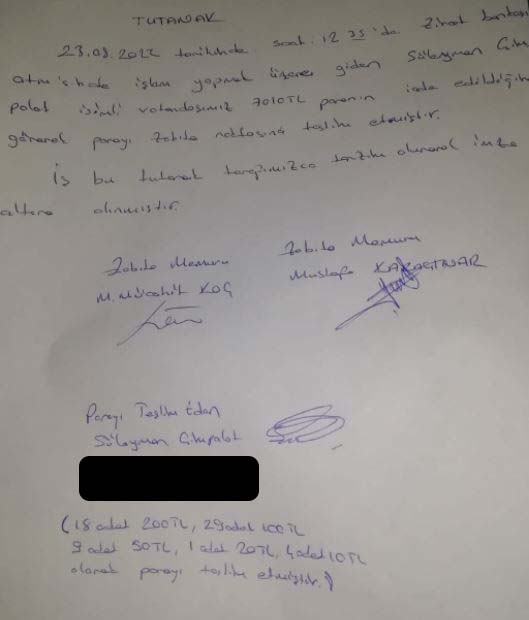 TUTANAK
23.09.2022 tarihinde saat 12 25'da Ziraat bankası
atm'sinde işlem yapmak üzere giden Süleyman
polat isimli vatandaşımız 7010TL paranın iade edildiğini
görerek parayı Zabıta noktasına teslim etmiştir.
İş bu tutanak tarafımızca tanzim olunarak imza
altına alınmıştır.
Zabıta Memuru Zabıta Memuru
M. Mücahit KOÇ Mustafa
Parayı Teslim Eden
Süleyman Çitupolat
(18 adet 200TL, 29 adet 100TL
9 adet 50TL, 1 adet 20TL, 4 adet 10TL
olarak parayı teslim etmiştir.)